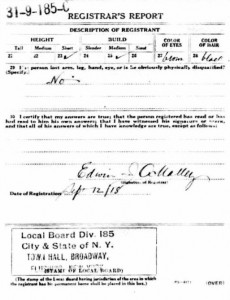 31-9-185-C
REGISTRAR'S REPORT
DESCRIPTION OF REGISTRANT
HEIGHT BUILD COLOR OF EYES COLOR OF HAIR
Tall Medium Short Slender Medium Stout
21 22 23 24 25 26 27 brown 28 black
29 Has person lost arm, leg, hand, eye, or is he obviously physically disqualified?
(Specify.)
No
30 I certify that my answers are true; that the person registered has read or has
had read to him his own answers; that I have witnessed his signature or mark,
and that all of his answers of which I have knowledge are true, except as follows:
Edwin
(Signature of Registrar)
Date of Registration Sept 12/18
Local Board Div. 185
City & State of N. Y.
TOWN HALL, BROADWAY,
(STAMP OF LOCAL BOARD)
(The stamp of the Local Board having jurisdiction of the area in which
the registrant has his permanent home shall be placed in this box.)
(OVER)